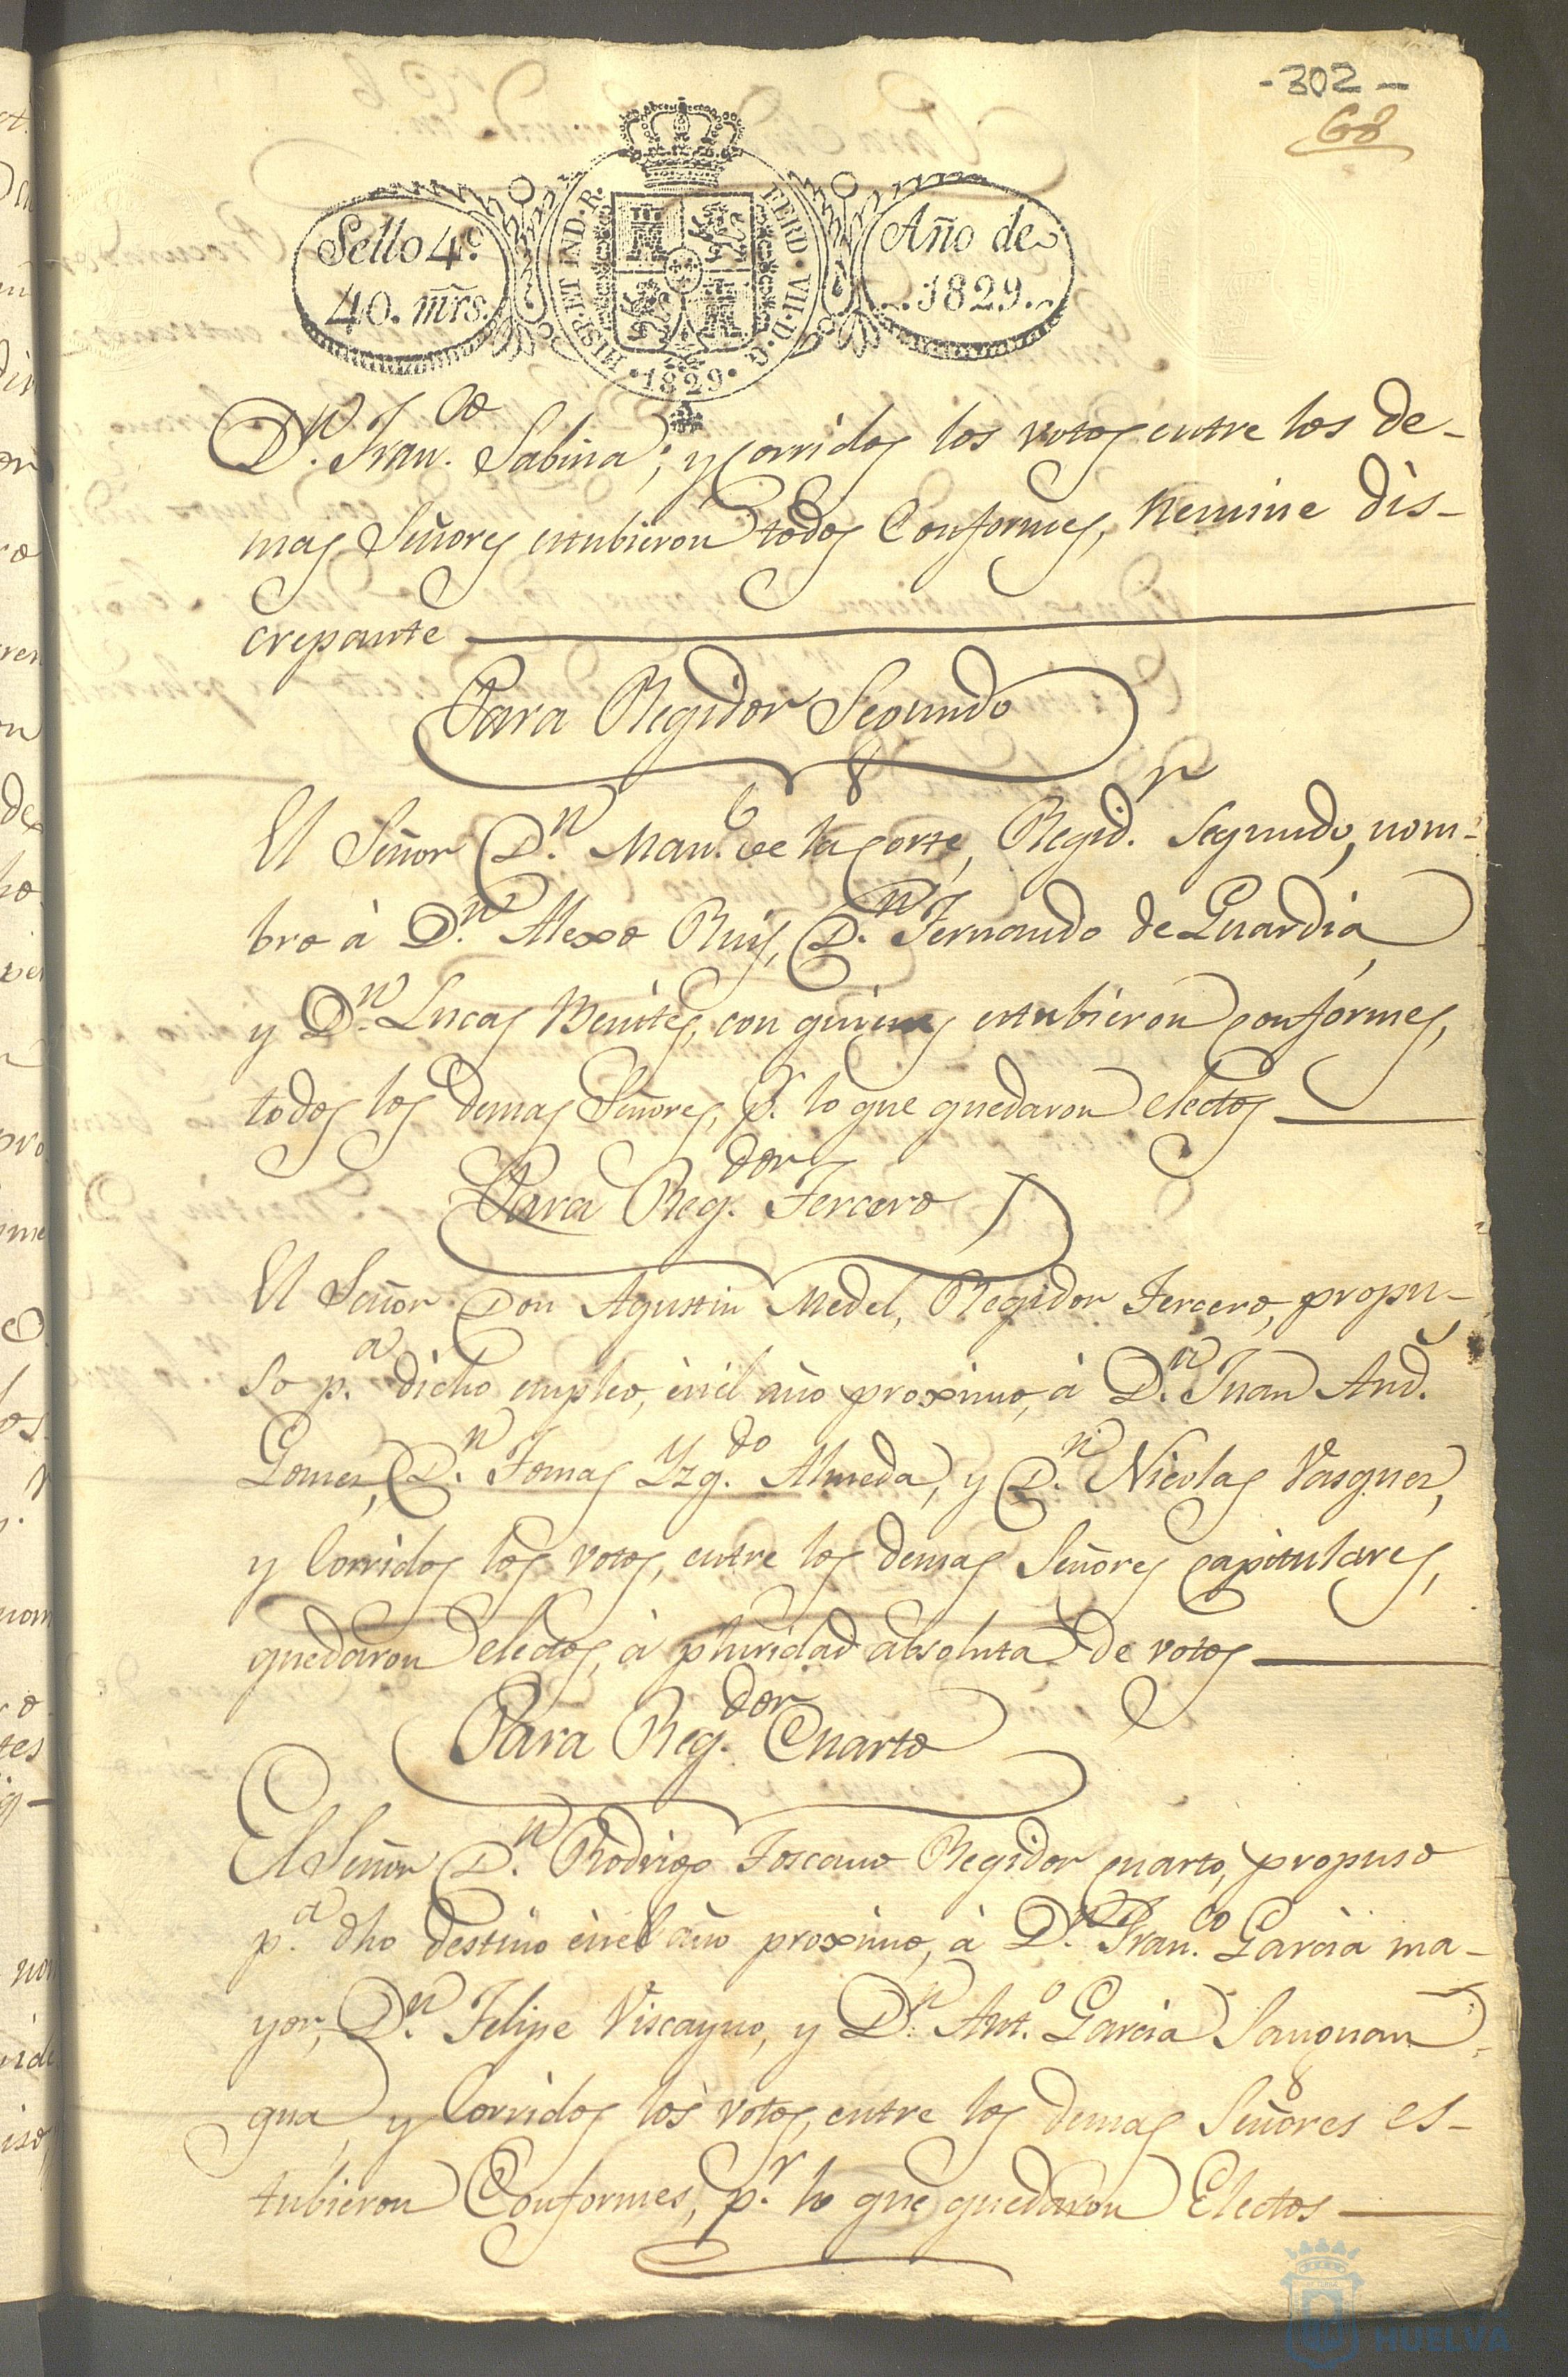 -302-
68
Sello 4º.
40. mrs.
HISP. ET IND. R. FERD. VII. D. G. 1829.
Año de
1829.
D.n Fran.co Sabina; y corridos los votos entre los de-
mas Señores estubieron todos Conformes, Nemine dis-
crepante
Para Regidor Segundo
El Señor D.n Man.l de la Corte, Regid.r Segundo, nom-
bro à D.n Alexo Ruiz, D.n Fernando de Guardia,
y D.n Lucas Benites, con quienes estubieron conformes,
todos los demas Señores, p.r lo que quedaron electos
Para Reg.dor Tercero
El Señor Don Agustin Medel, Regidor Tercero, propu-
so p.a dicho empleo, en el año proximo, à D.n Juan And.s
Gomez, D.n Tomas Yzq.do Almeda, y D.n Nicolas Vasquez,
y Corridos los votos, entre los demas Señores capitulares,
quedaron electos, à pluridad absoluta de votos
Para Reg.dor Cuarto
El Señor D.n Rodrigo Toscano Regidor cuarto, propuso
p.a dho destino en el año proximo, à D.n Fran.co Garcia ma-
yor, D.n Felipe Viscayno, y D.n Ant.o Garcia Sanguan-
gua y Corridos los votos, entre los demas Señores es-
tubieron Conformes, p.r lo que quedaron Electos
HUELVA